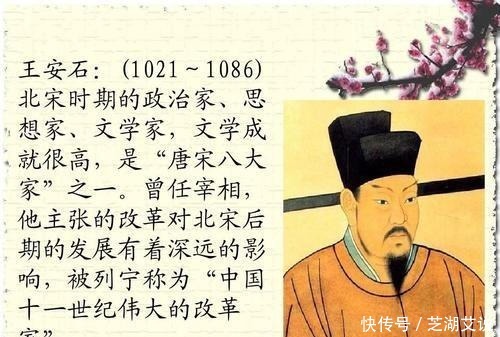 王安石：(1021～1086)
北宋时期的政治家、思
想家、文学家，文学成
就很高，是“唐宋八大
家”之一。曾任宰相，
他主张的改革对北宋后
期的发展有着深远的影
响，被列宁称为“中国
十一世纪伟大的改革
家”
快传号/芝湖艾说